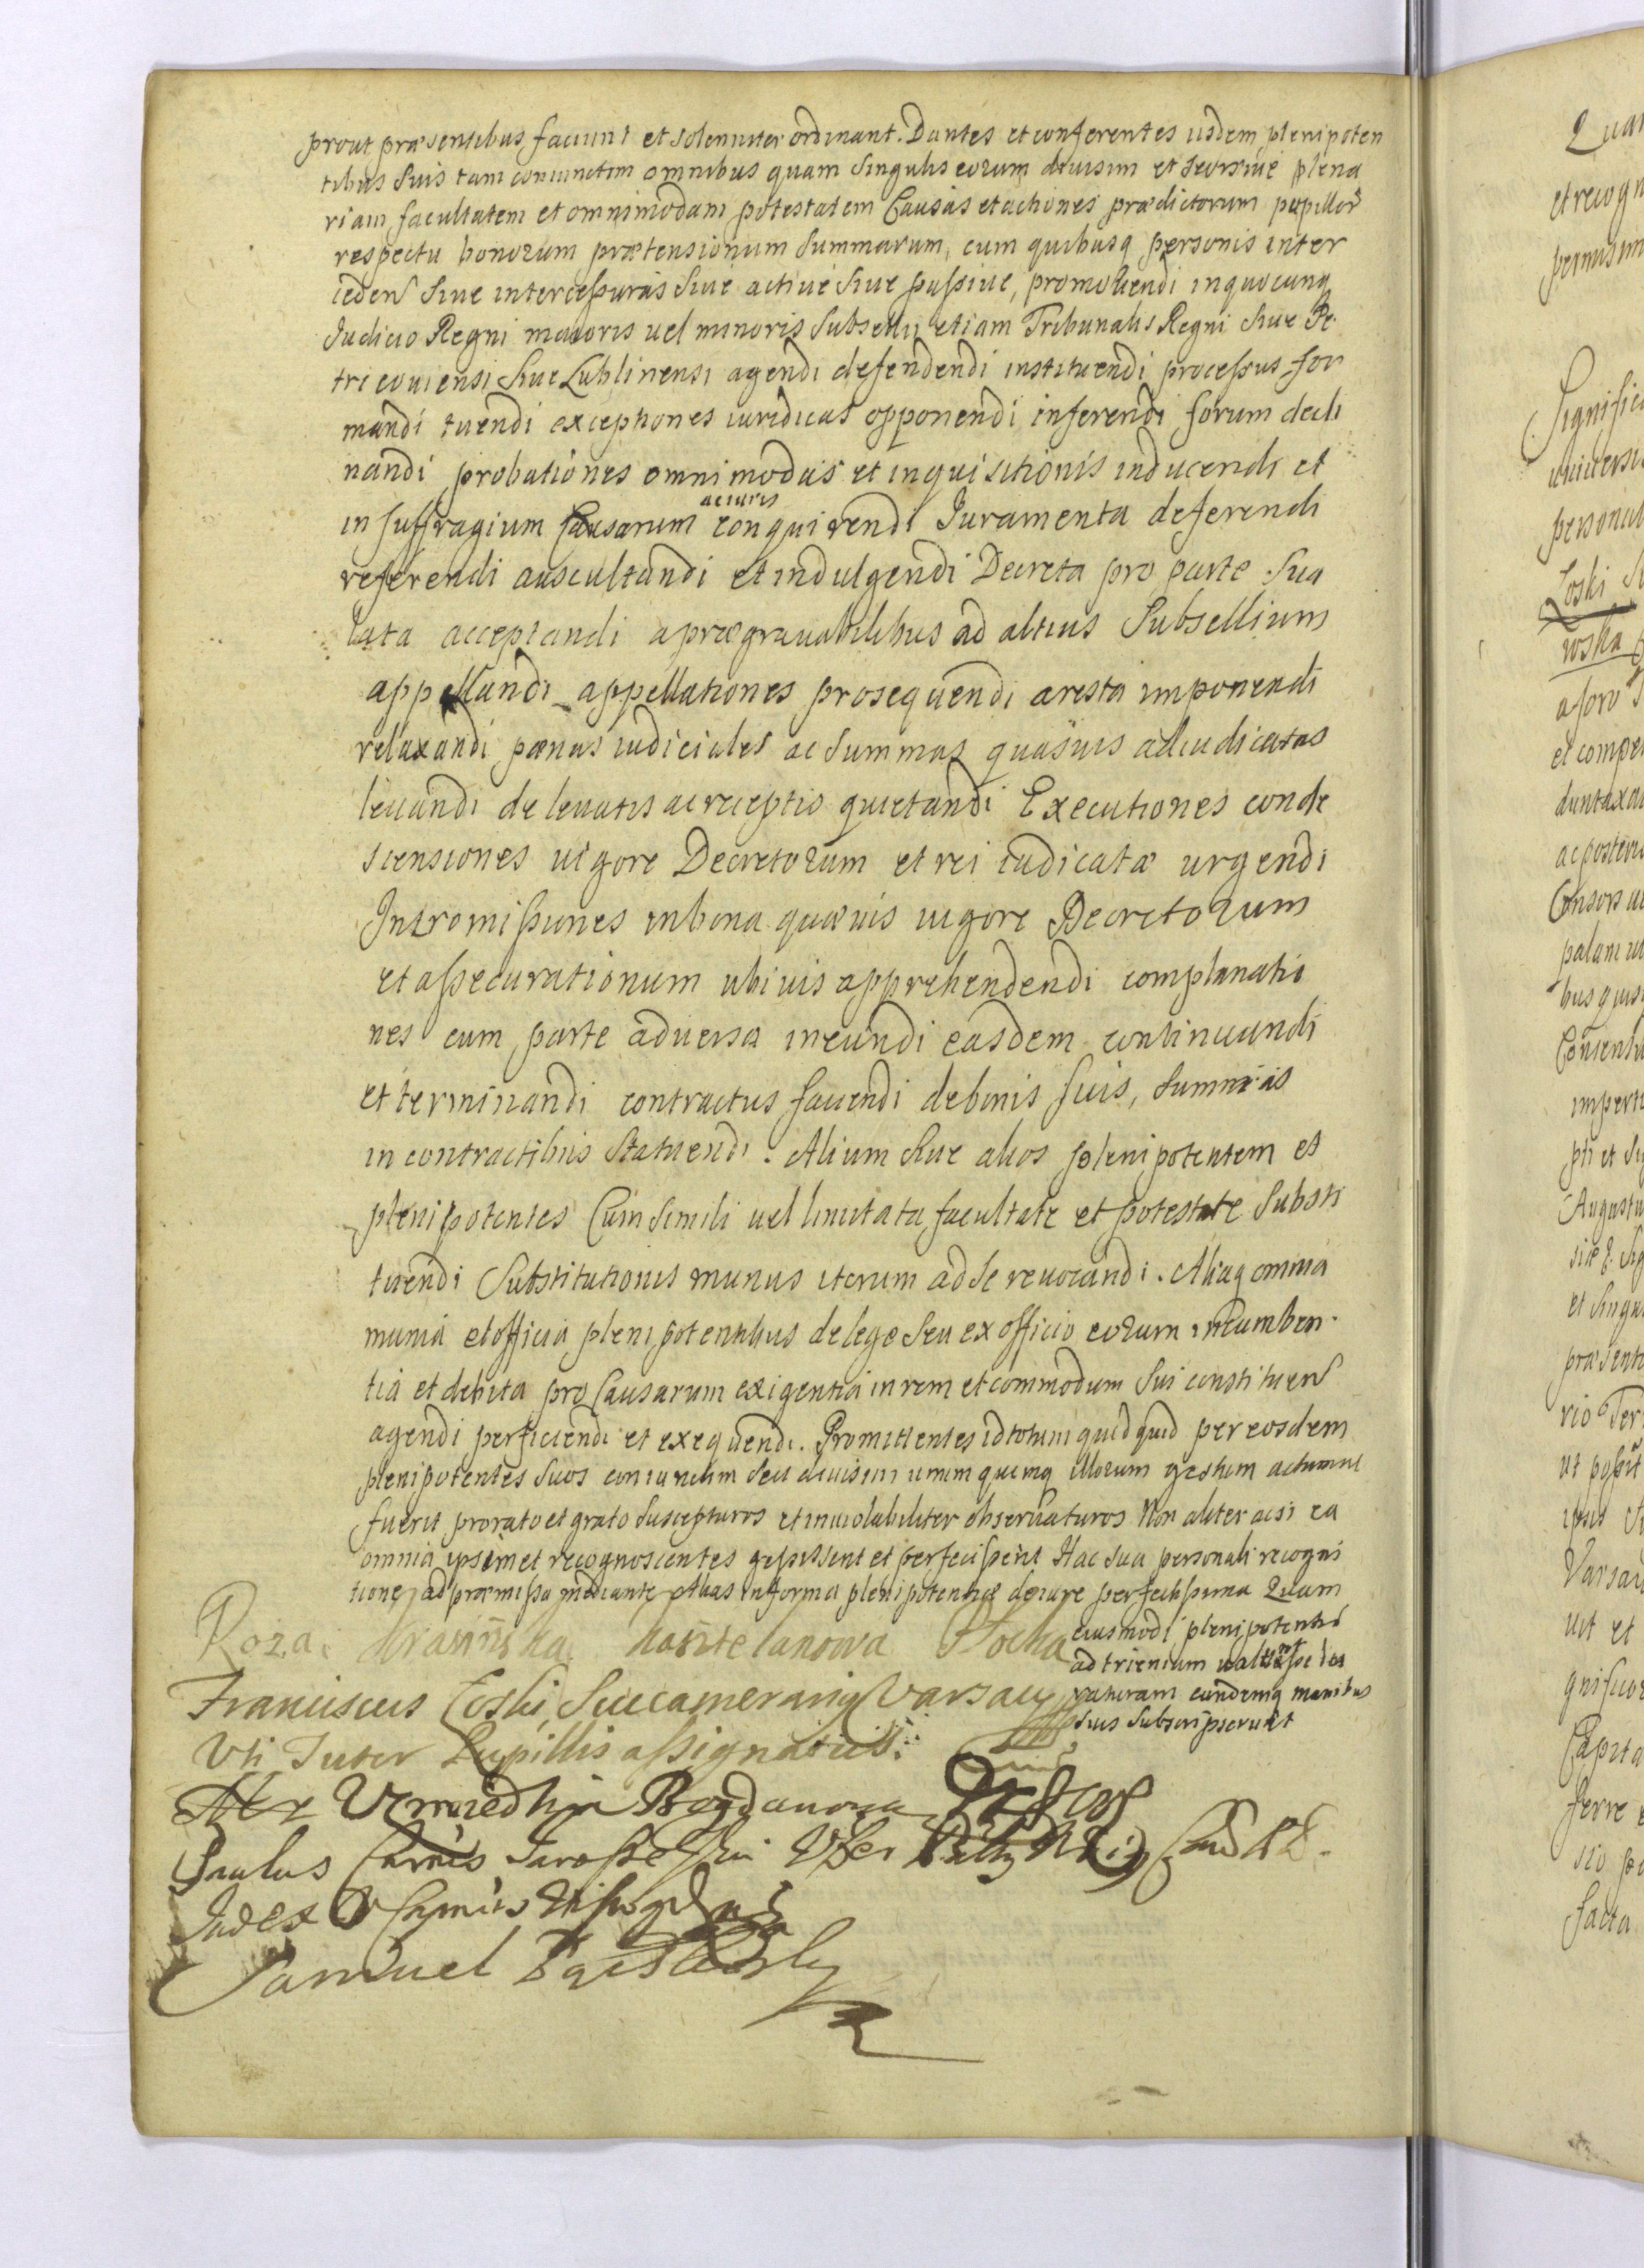 prout præsentibus faciunt et solenniter ordinant. Dantes et conferentes iisdem plenipoten
tibus suis tam coniunctim omnibus quam singulis eorum diuisim et seorsiue plena
riam facultatem et omnimodam potestatem Causas et actiones prædictorum pupillor
respectu bonorum prætensionum summarum, cum quibusq personis inter
ceden siue intercessuras siue actiue siue passiue, promouendi in quocunq
Iudicio Regni maioris uel minoris subsellij etiam Tribunalis Regni siue Pe
tricouiensi siue Lublinensi agendi defendendi instituendi processus for
mandi tuendi exceptiones iuridicas opponendi inferendi forum decli
nandi probationes omnimodas et inquisitionis inducendi et
in suffragium Causarum acturis conquirendi Iuramenta deferendi
referendi auscultandi et indulgendi Decreta pro parte sua
lata acceptandi a prægrauabilibus ad altius Subsellium
appellandi appellationes prosequendi aresta imponendi
relaxandi pænas iudiciales ac summas quasuis adiudicatas
leuandi de leuatis ac receptis quietandi Executiones conde
scensiones uigore Decretorum et rei iudicatæ urgendi
Intromissiones in bona quæuis uigore Decretorum
et assecurationum ubiuis apprehendendi complanatio
nes cum parte aduersa ineundi easdem continuandi
et terminandi contractus faciendi de bonis suis, summis
in contractibus statuendi. Alium siue alios plenipotentem et
plenipotentes Cum simili uel limitata facultate et potestate substi
tuendi Substitutionis munus iterum ad se reuocandi. Aliaq omnia
munia et officia plenipotentibus de lege seu ex officio eorum incumben
tia et debita pro Causarum exigentia in rem et commodum sui constituen
agendi perficiendi et exequendi. Promittentes id totum quidquid per eosdem
plenipotentes suos coniunctim seu diuisim unum quemq illorum gestum actumue
fuerit pro rato et grato suscepturos et inuiolabiliter obseruaturos Non aliter acsi ea
omnia ipsimet recognoscentes gessissent et perfecissent Hac sua personali recogni
tione ad præmissa mediante Alias in forma plenipotentiæ de iure perfectissima Quam
eiusmodi plenipotentia
ad trienium ualituram esse des
raturam eundemq manibus
suis subscripserunt
Roza Krasinska kasztelanowa Płocka
Franciscus Łoski Succamerariq Varsau
Vti Tutor Pupillis assignatus
Bogdanowa
Paulus
Judex
Samuel